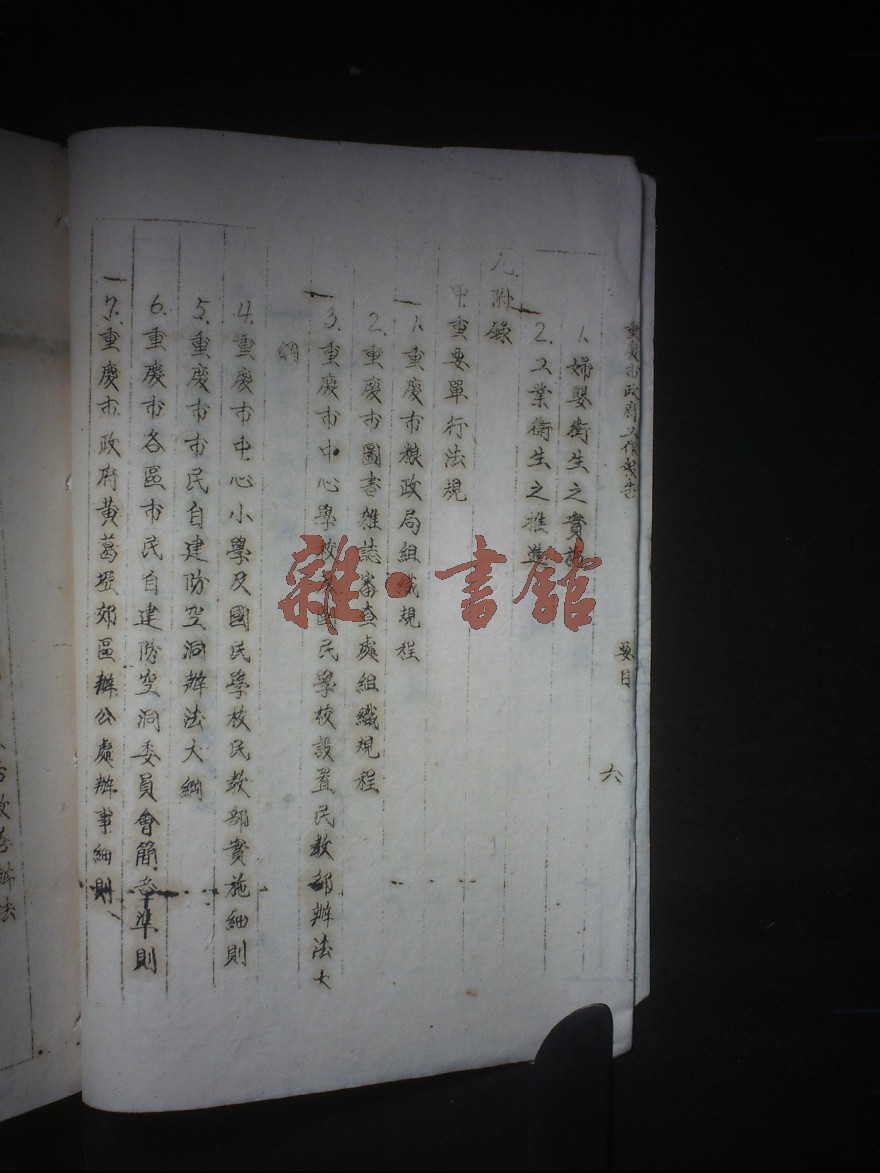 重慶市政府工作報告
要目
六
1. 婦嬰衛生之實施
2. 工業衛生之推進
九. 附錄
甲. 重要單行法規
1. 重慶市粮政局組織規程
2. 重慶市圖書雜誌審查處組織規程
3. 重慶市中心學校及國民學校設置民教部辦法大
綱
4. 重慶市中心小學及國民學校民教部實施細則
5. 重慶市市民自建防空洞辦法大綱
6. 重慶市各區市民自建防空洞委員會簡章準則
7. 重慶市政府黄葛埡郊區辦公處辦事細則
雜·書館